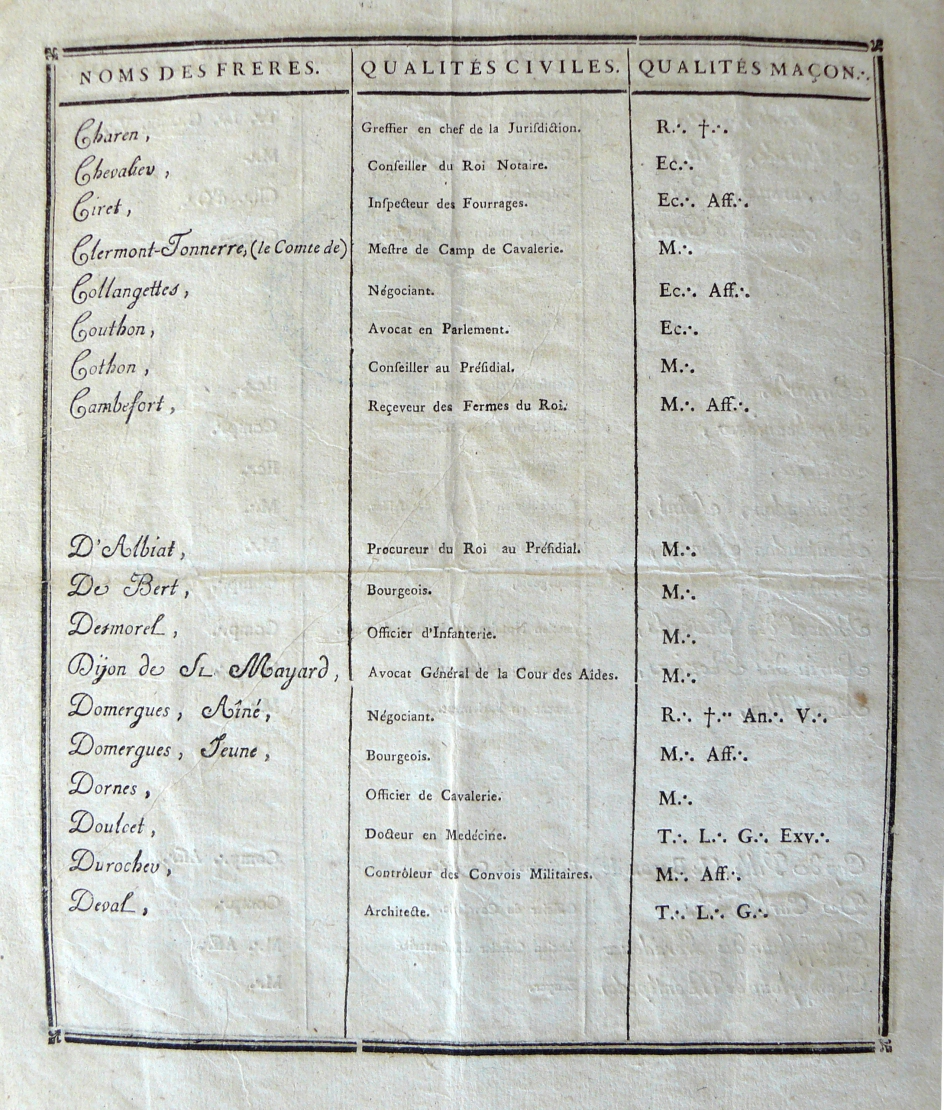 NOMS DES FRERES. QUALITÉS CIVILES. QUALITÉS MAÇON.·.
Charen, Greffier en chef de la Jurisdiction. R.·. †.·.
Chevalier, Conseiller du Roi Notaire. Ec.·.
Ciret, Inspecteur des Fourrages. Ec.·. Aff.·.
Clermont-Tonnerre, (le Comte de) Mestre de Camp de Cavalerie. M.·.
Collangettes, Négociant. Ec.·. Aff.·.
Couthon, Avocat en Parlement. Ec.·.
Cothon, Conseiller au Présidial. M.·.
Cambefort, Reçeveur des Fermes du Roi. M.·. Aff.·.
D'Albiat, Procureur du Roi au Présidial. M.·.
De Bert, Bourgeois. M.·.
Desmorel, Officier d'Infanterie. M.·.
Dijon de St. Mayard, Avocat Général de la Cour des Aides. M.·.
Domergues, Aîné, Négociant. R.·. †.·. An.·. V.·.
Domergues, Jeune, Bourgeois. M.·. Aff.·.
Dornes, Officier de Cavalerie. M.·.
Doulcet, Docteur en Medécine. T.·. L.·. G.·. Exv.·.
Durocher, Contrôleur des Convois Militaires. M.·. Aff.·.
Deval, Architecte. T.·. L.·. G.·.